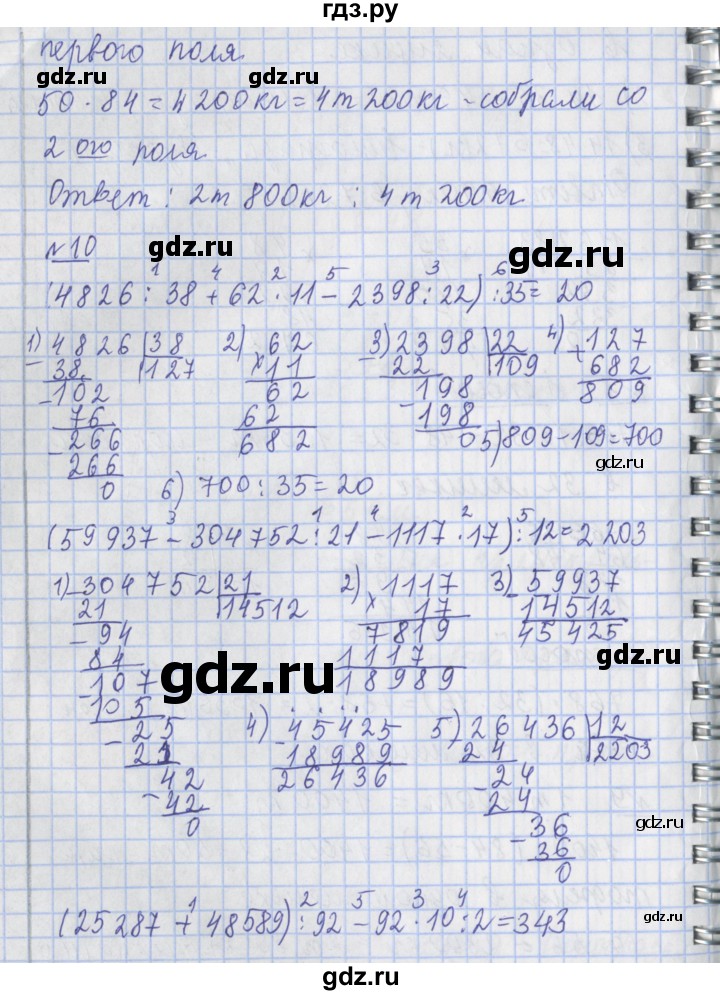 гдз.ру
первого поля
50 · 84 = 4200кг = 4т 200кг - собрали со
2 ого поля
Ответ : 2т 800кг ; 4т 200кг
gdz.ru
gdz.ru
№10
1 4 2 5 3 6
(4826 : 38 + 62 · 11 - 2398 : 22) : 35 = 20
1) 4826 38 2) 62 3) 2398 22 4) 127
- 38 127 × 11 - 22 109 + 682
- 102 62 198 809
76 62 - 198
- 266 682 0 5) 809 - 109 = 700
266
0 6) 700 : 35 = 20
3 1 4 2 5
(59937 - 304752 : 21 - 1117 · 17) : 12 = 2203
1) - 304752 21 2) 1117 3) - 59937
21 14512 × 17 14512
- 94 7819 45425
84 1117
- 107 18989
gdz.ru
gdz.ru
105
- 25 4) - 45425 5) 26436 12
21 18989 24 2203
42 26436 - 24
- 42 24
0 - 36
36
0
gdz.ru
1 2 5 3 4
(25287 + 48589) : 92 - 92 · 10 : 2 = 343
gdz.ru
gdz.ru
гдз.ру